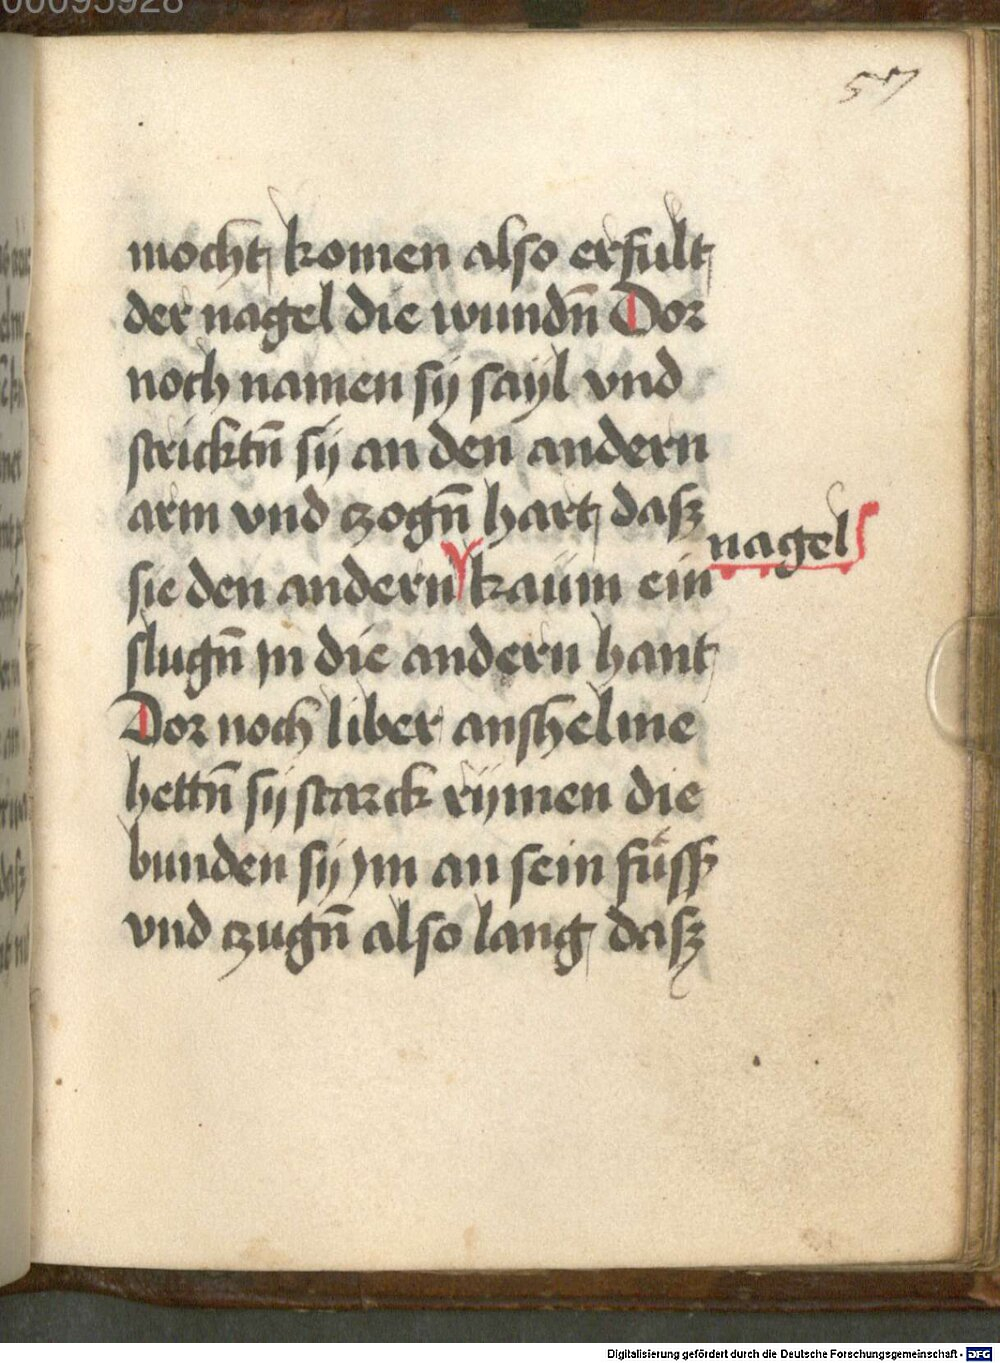 57
mocht komen also erfult
der nagel die wundn̄ Dor
noch namen sÿ sayl vnd
stricktn̄ sÿ an den andern
arm vnd czogn̄ hart dasz
nagel
sie den andern kaüm ein
slugn̄ jn die andern hant
Dor noch liber anshelme
hettn̄ sÿ starck rÿmen die
bunden sÿ jm an sein fuͤssz
vnd czugn̄ also lang dasz
Digitalisierung gefördert durch die Deutsche Forschungsgemeinschaft - DFG